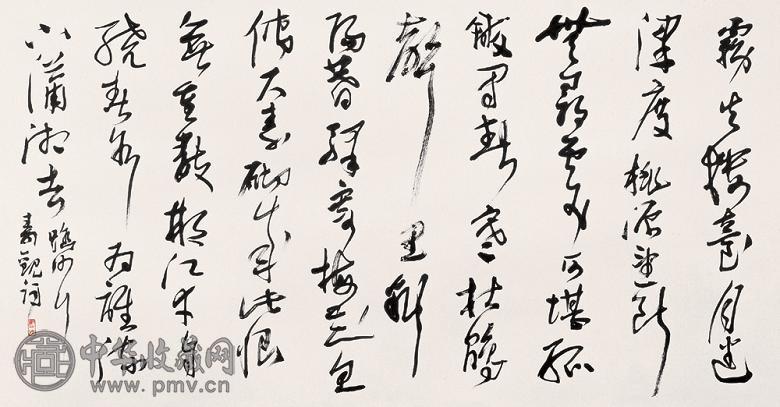 霧失樓臺月迷
津度桃源望斷
無尋處可堪孤
館閉春寒杜鵑
聲里斜
陽暮驛寄梅花魚
傳尺素砌成此恨
無重數郴江幸自
繞郴山為誰流
下瀟湘去踏沙行
秦觀詞
中华收藏网
www.pmv.cn